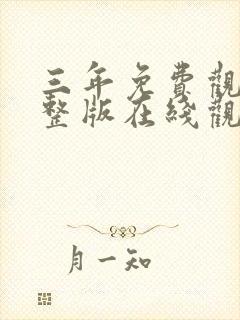 三年免費觀
整版在綫觀
月一知